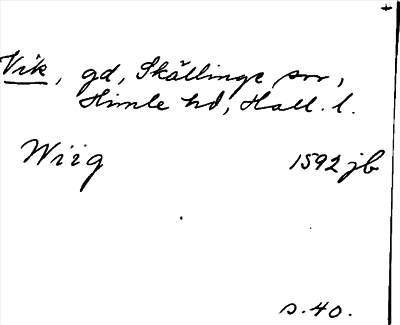 Vik, gd, Skällinge sn,
Himle hd, Hall. l.
Wiig 1592 jb
s. 40.